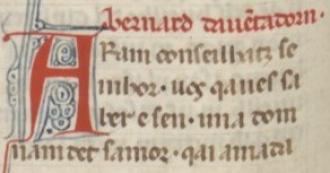 bernard deuẽtadorn.
ARam conseillatz se
inhor. uos qaues sa
ber e sen. una dom
nam det samor. qai amada